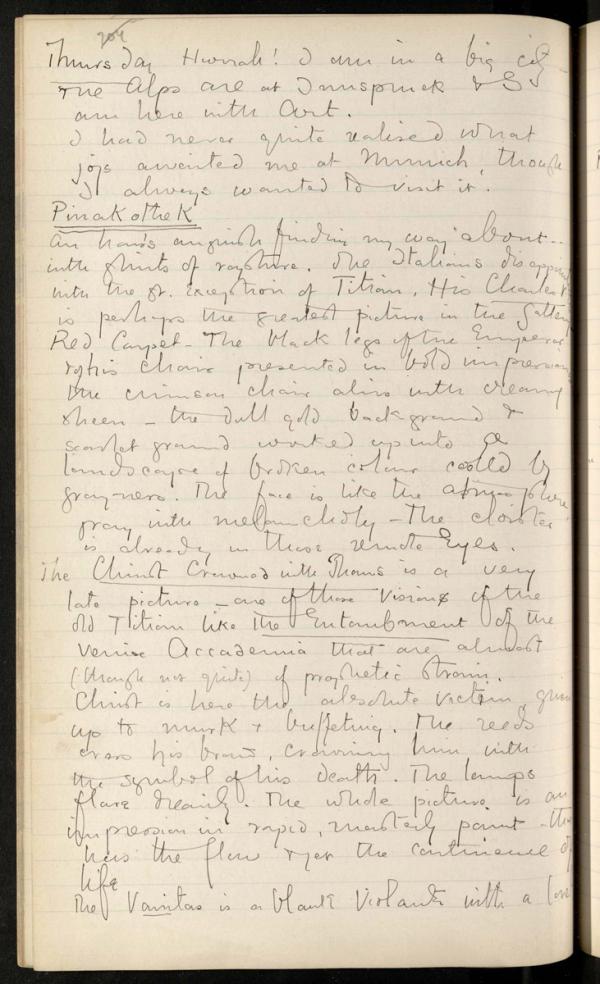 Thursday Hurrah! I am in a big city
The Alps are at Innspruck & I
am here with Art.
I had never quite realised what
joys awaited me at Munich, though
I always wanted to visit it.
Pinakothek
An hour's anguish finding my way about -
with glints of rapture. The Italians disappoint
with the gr. exception of Titian. His Charles V
is perhaps the greatest picture in the Gallery
Red Carpet - The black legs of the Emperor
& his chair presented in bold impression
the crimson chair alive with creamy
sheen - the dull gold background &
scarlet ground worked up into a
landscape of broken colour cooled by
grayness. The face is like the atmosphere
gray with melancholy - The cloister
is already in those remote Eyes.
The Christ Crowned with Thorns is a very
late picture - one of those Visions of the
old Titian like the Entombment of the
Venice Accademia that are almost
(though not quite) of prophetic strain.
Christ is here the absolute victim, given
up to murk & buffeting. The reeds
cross his brows, crowning him with
the symbol of his death. The lamps
flare drearily. The whole picture is an
impression in rapid, masterly paint - that
has the flow & yet the continence of
life
The Vanitas is a blank Violante with a